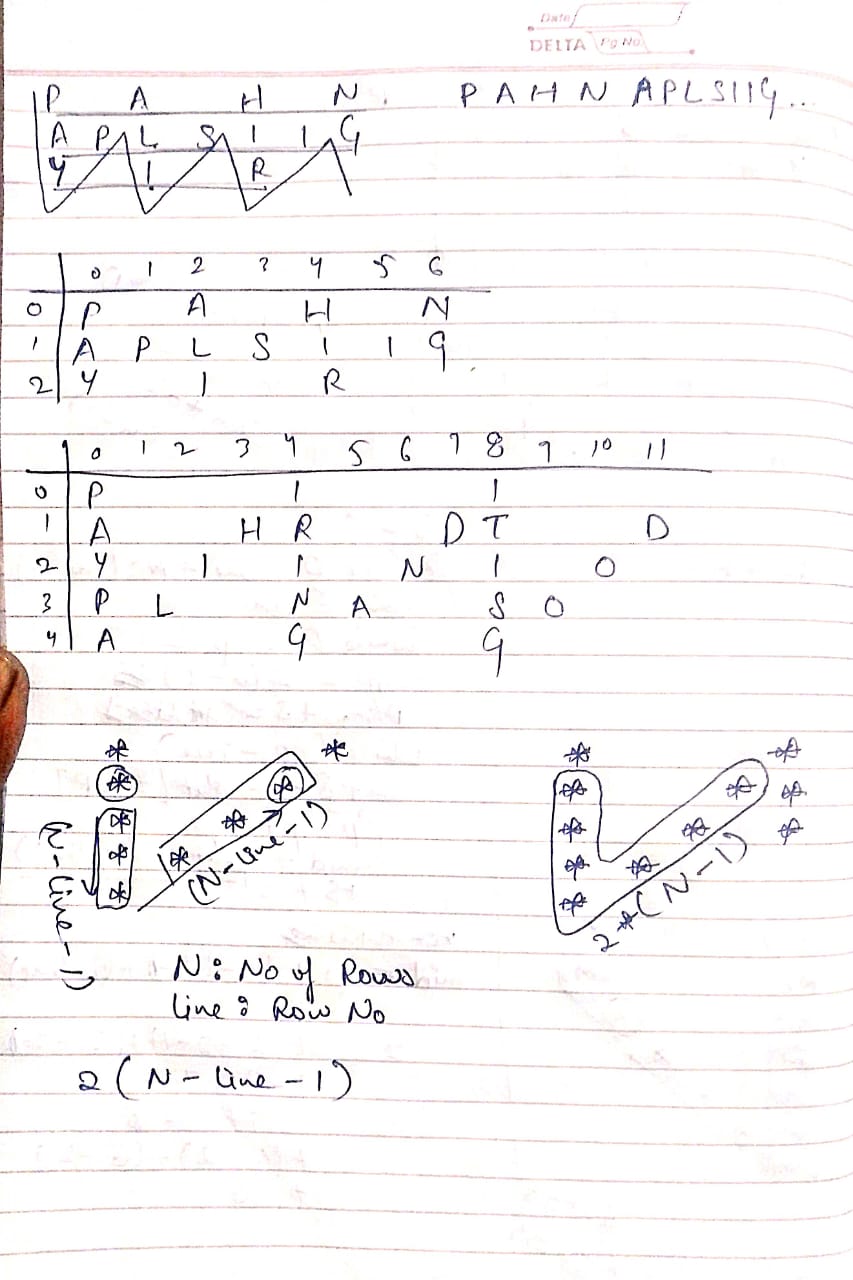 Date
DELTA Pg No
P A H N . P A H N A P L S I I G ...
A P L S I I G
Y I R
0 1 2 3 4 5 6
0 P A H N
1 A P L S I I G
2 Y I R
0 1 2 3 4 5 6 7 8 9 10 11
0 P I I
1 A H R D T D
2 Y I I N I O
3 P L N A S O
4 A G G
* * * *
* * * * *
* * * * * *
* * * *
* *
(N-line-1)
(N-line-1)
2*(N-1)
N: No of Rows
line: Row No
2(N-line-1)